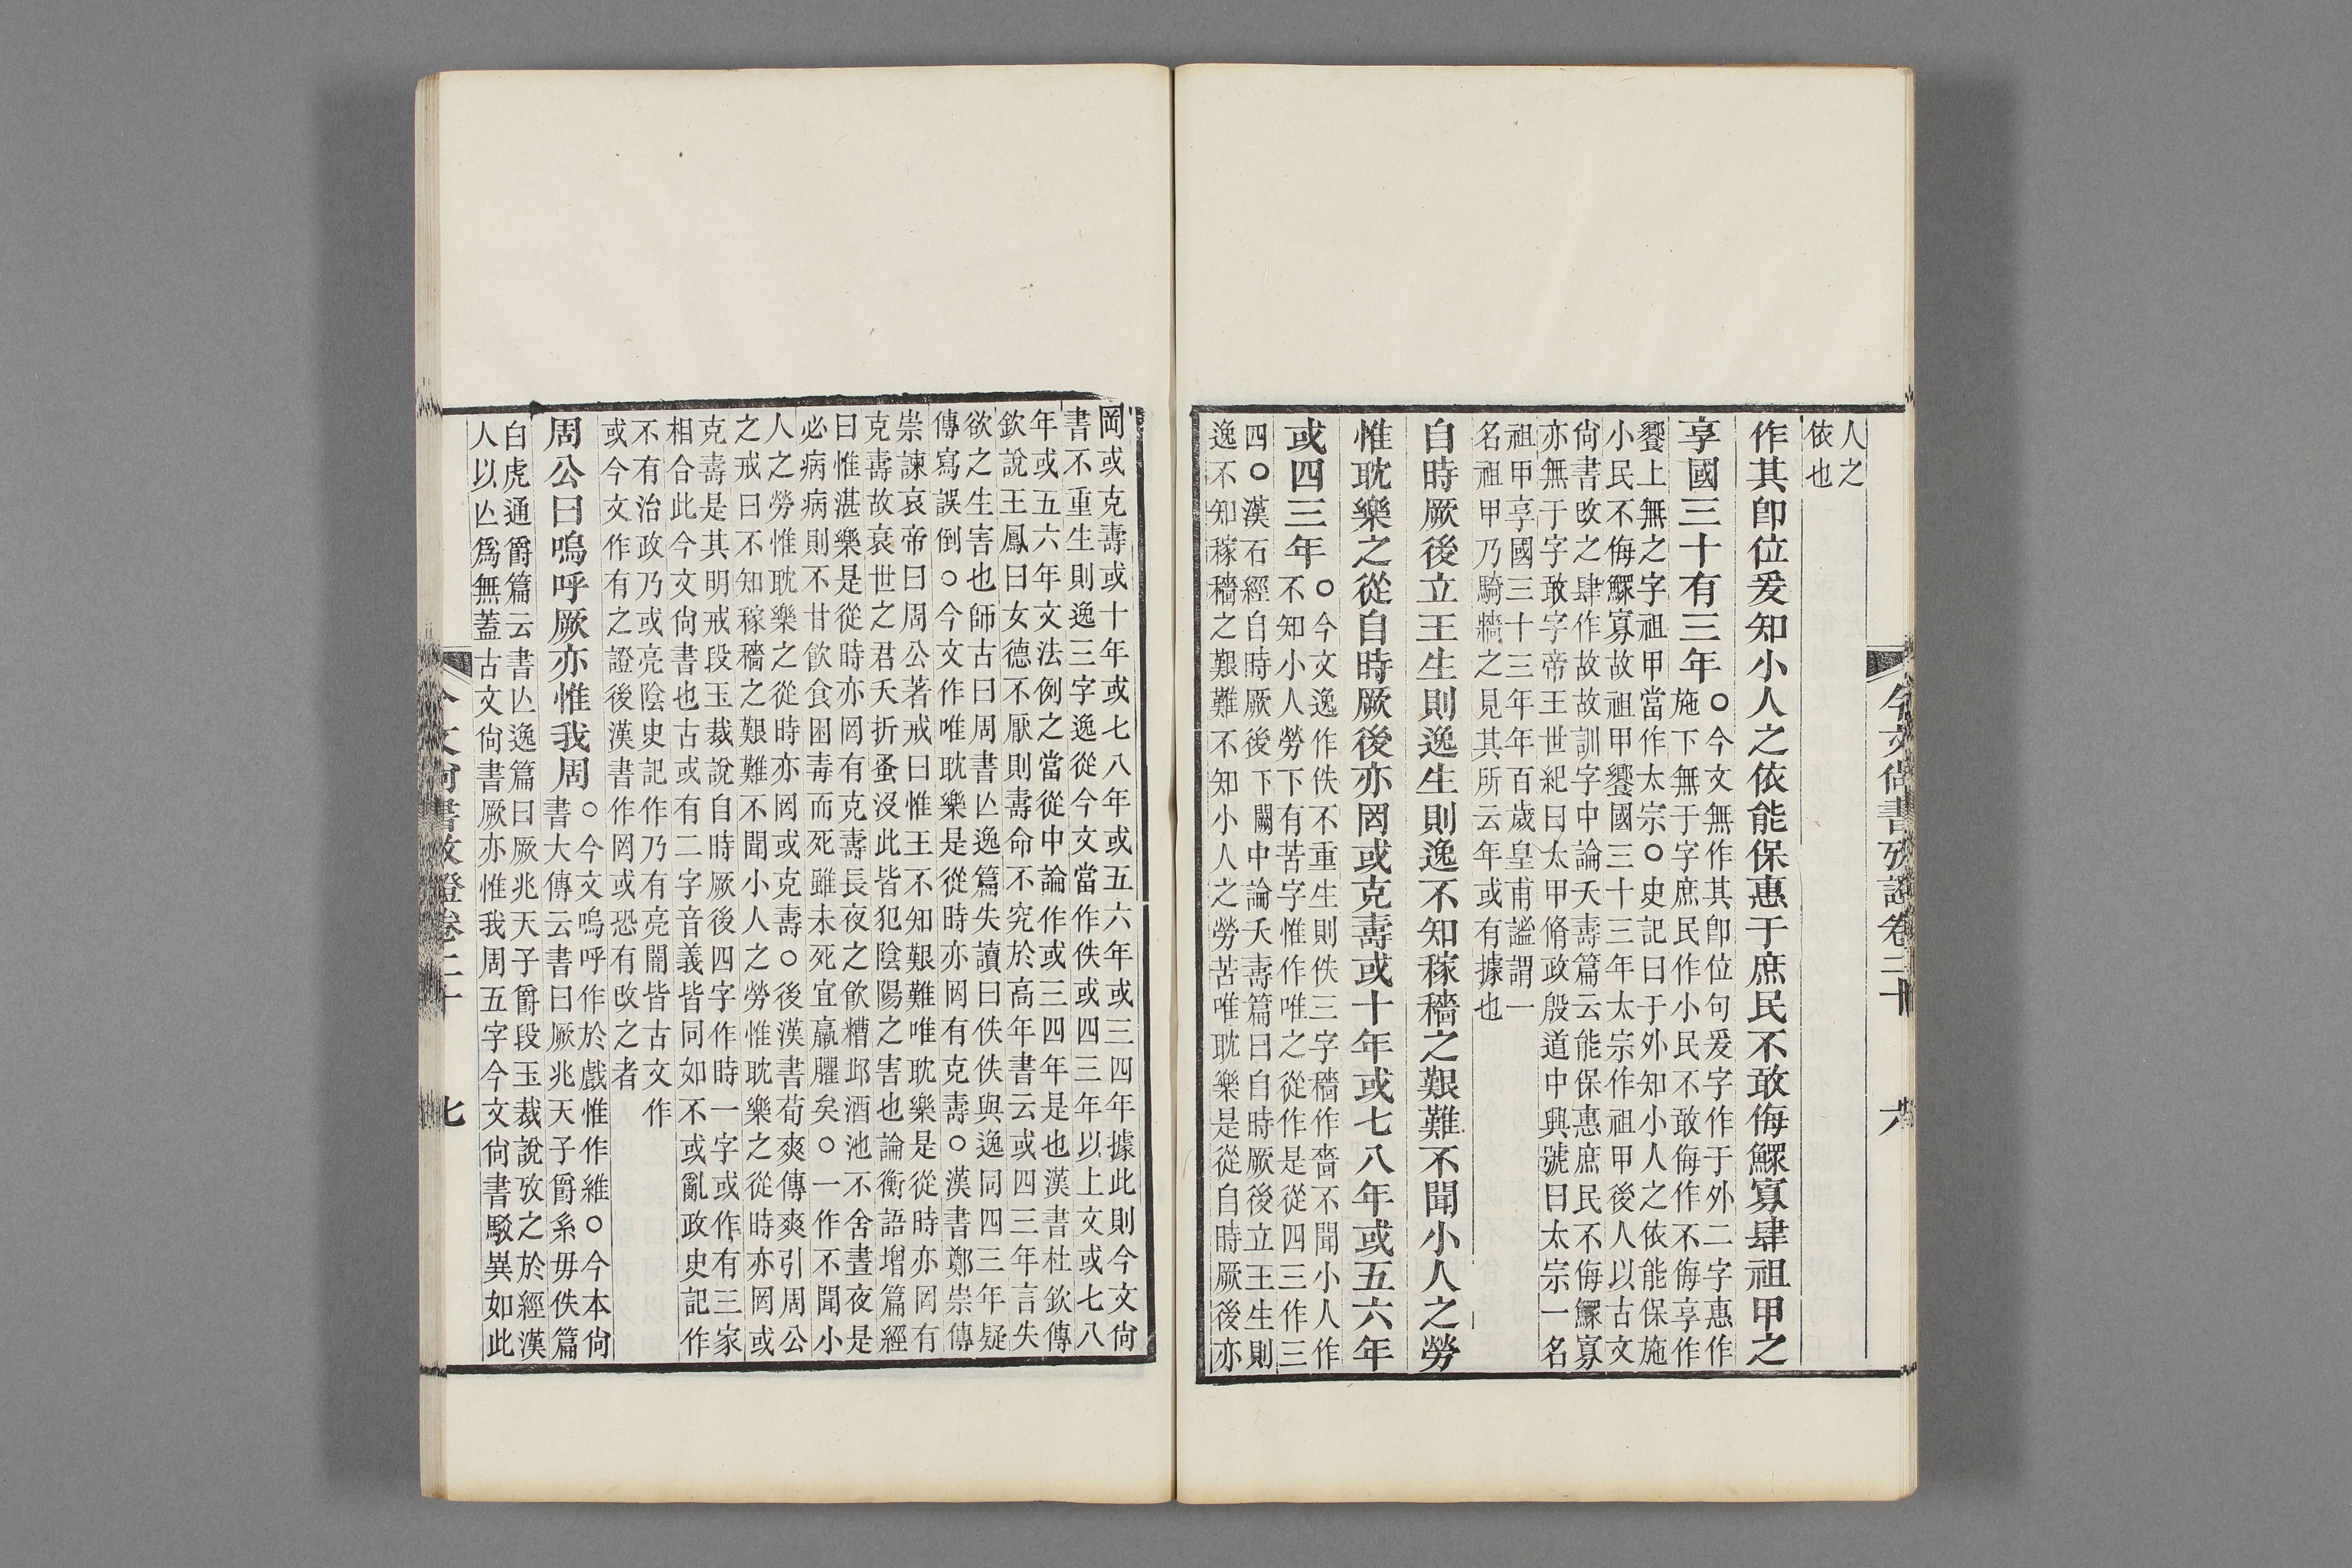 今文尙書攷證卷二十　六
人之
依也
作其卽位爰知小人之依能保惠于庶民不敢侮鰥寡肆祖甲之
享國三十有三年
○今文無作其卽位句爰字作于外二字惠作
施下無于字庶民作小民不敢侮作不侮享作
饗上無之字祖甲當作太宗○史記曰于外知小人之依能保施
小民不侮鰥寡故祖甲饗國三十三年太宗作祖甲後人以古文
尙書改之肆作故故訓字中論夭壽篇云能保惠庶民不侮鰥寡
亦無于字敢字帝王世紀曰太甲脩政殷道中興號曰太宗一名
祖甲享國三十三年年百歲皇甫謐謂一
名祖甲乃騎牆之見其所云年或有據也
自時厥後立王生則逸生則逸不知稼穡之艱難不聞小人之勞
惟耽樂之從自時厥後亦罔或克壽或十年或七八年或五六年
或四三年
○今文逸作佚不重生則佚三字穡作嗇不聞小人作
不知小人勞下有苦字惟作唯之從作是從四三作三
四○漢石經自時厥後下闕中論夭壽篇曰自時厥後立王生則
逸不知稼穡之艱難不知小人之勞苦唯耽樂是從自時厥後亦
罔或克壽或十年或七八年或五六年或三四年據此則今文尙
書不重生則逸三字逸從今文當作佚或四三年以上文或七八
年或五六年文法例之當從中論作或三四年是也漢書杜欽傳
欽說王鳳曰女德不厭則壽命不究於高年書云或四三年言失
欲之生害也師古曰周書亾逸篇失讀曰佚佚與逸同四三年疑
傳寫誤倒○今文作唯耽樂是從時亦罔有克壽○漢書鄭崇傳
崇諫哀帝曰周公著戒曰惟王不知艱難唯耽樂是從時亦罔有
克壽故衰世之君夭折蚤沒此皆犯陰陽之害也論衡語增篇經
曰惟湛樂是從時亦罔有克壽長夜之飮糟邱酒池不舍晝夜是
必病病則不甘飮食困毒而死雖未死宜羸臞矣○一作不聞小
人之勞惟耽樂之從時亦罔或克壽○後漢書荀爽傳爽引周公
之戒曰不知稼穡之艱難不聞小人之勞惟耽樂之從時亦罔或
克壽是其明戒段玉裁說自時厥後四字作時一字或作有三家
相合此今文尙書也古或有二字音義皆同如不或亂政史記作
不有治政乃或亮陰史記作乃有亮闇皆古文作
或今文作有之證後漢書作罔或恐有改之者
周公曰嗚呼厥亦惟我周
○今文嗚呼作於戲惟作維○今本尙
書大傳云書曰厥兆天子爵系毋佚篇
白虎通爵篇云書亾逸篇曰厥兆天子爵段玉裁說攷之於經漢
人以亾爲無蓋古文尙書厥亦惟我周五字今文尙書駁異如此
今文尙書攷證卷二十　七